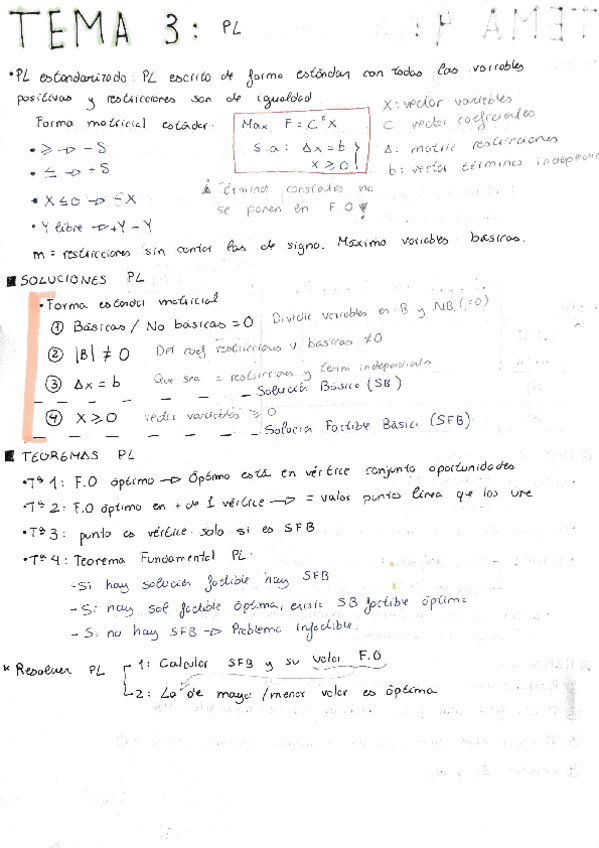 TEMA 3: PL
• PL estandarizado: PL escrito de forma estándar con todas las variables
positivas y restricciones son de igualdad
Forma matricial estándar:
Max F = CᵗX
s.a: Ax = b
X ≥ 0
X: vector variables
C vector coeficientes
A: matriz restricciones
b: vector términos independi
• ≥ → - S
• ≤ → + S
• X ≤ 0 → - X
• Y libre → + Y - Y
Términos constantes no
se ponen en F O
m = restricciones sin contar las de signo. Máximo variables básicas.
SOLUCIONES PL
• Forma estándar matricial
① Básicas / No básicas = 0 Dividir variables en B y NB (=0)
② |B| ≠ 0 Det coef restricciones v. basicas ≠ 0
③ Ax = b Que sea = restricciones y térm independientes
Solución Básica (SB)
④ X ≥ 0 vector variables ≥ 0
Solución Factible Básica (SFB)
TEOREMAS PL
• Tª 1: F.O óptimo → Óptimo está en vértice conjunto oportunidades
• Tª 2: F.O óptimo en + de 1 vértice → = valor puntos línea que los une
• Tª 3: punto es vértice solo si es SFB
• Tª 4: Teorema Fundamental PL.
- Si hay solución factible hay SFB
- Si hay sol factible óptima, existe SB factible óptima
- Si no hay SFB → Problema infactible.
* Resolver PL
1: Calcular SFB y su valor F.O
2: La de mayor / menor valor es óptima